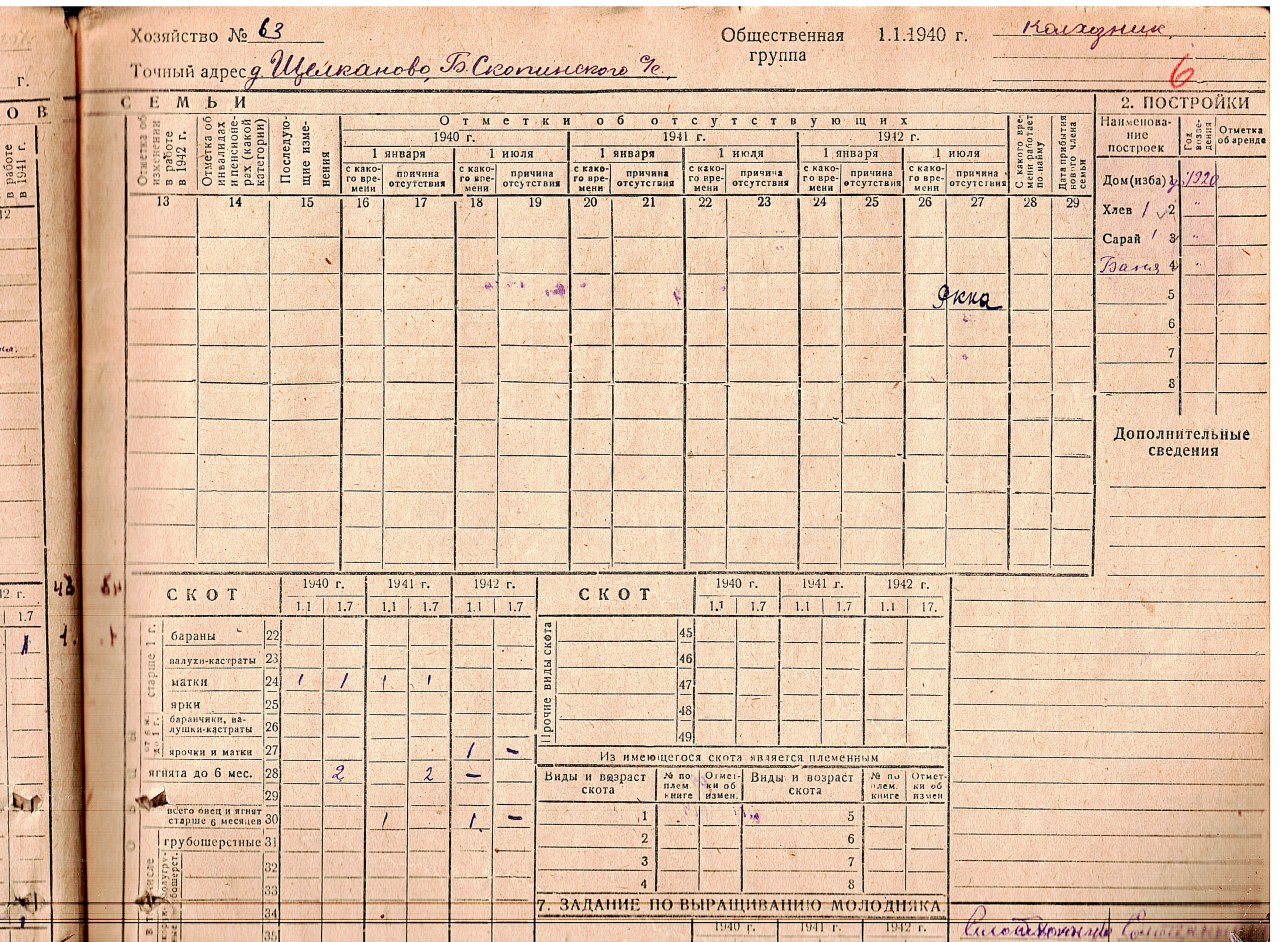 Хозяйство № 63
Общественная группа 1.1.1940 г. Колхозник
Точный адрес д. Щелканово, Б. Скопинского с/с.
6
г.
О В
в работе в 1941 г.
12
СЕМЬИ
Отметка об изменении в работе в 1942 г.
Отметка об инвалидах и пенсионерах (какой категории)
Последующие изменения
Отметки об отсутствующих
1940 г. 1941 г. 1942 г.
1 января 1 июля 1 января 1 июля 1 января 1 июля
с како- го вре- мени причина отсутствия с како- го вре- мени причина отсутствия с како- го вре- мени причина отсутствия с како- го вре- мени причина отсутствия с како- го вре- мени причина отсутствия с како- го вре- мени причина отсутствия
С какого вре- мени работает по найму
Дата прибытия нового члена семьи
13 14 15 16 17 18 19 20 21 22 23 24 25 26 27 28 29
2. ПОСТРОЙКИ
Наименова- ние построек
Год возве- дения
Отметка об аренде
Дом (изба) 1 1920
Хлев 1 2 "
Сарай 1 3 "
Баня 4
5
6
7
8
Дополнительные сведения
2 г.
1.7
1
СКОТ 1940 г. 1941 г. 1942 г.
1.1 1.7 1.1 1.7 1.1 1.7
старше 1 г.
бараны 22
валухи-кастраты 23
матки 24 1 1 1 1
ярки 25
баранчики, ва- лушки-кастраты 26
ярочки и матки 27 1 –
ягнята до 6 мес. 28 2 2 –
29
всего овец и ягнят старше 6 месяцев 30 1 1 –
грубошерстные 31
32
33
34
35
СКОТ 1940 г. 1941 г. 1942 г.
1.1 1.7 1.1 1.7 1.1 17.
Прочие виды скота
45
46
47
48
49
Из имеющегося скота является племенным
Виды и возраст скота № по плем. книге Отмет- ки об измен. Виды и возраст скота № по плем. книге Отмет- ки об измен
1 5
2 6
3 7
4 8
7. ЗАДАНИЕ ПО ВЫРАЩИВАНИЮ МОЛОДНЯКА
1940 г. 1941 г. 1942 г.